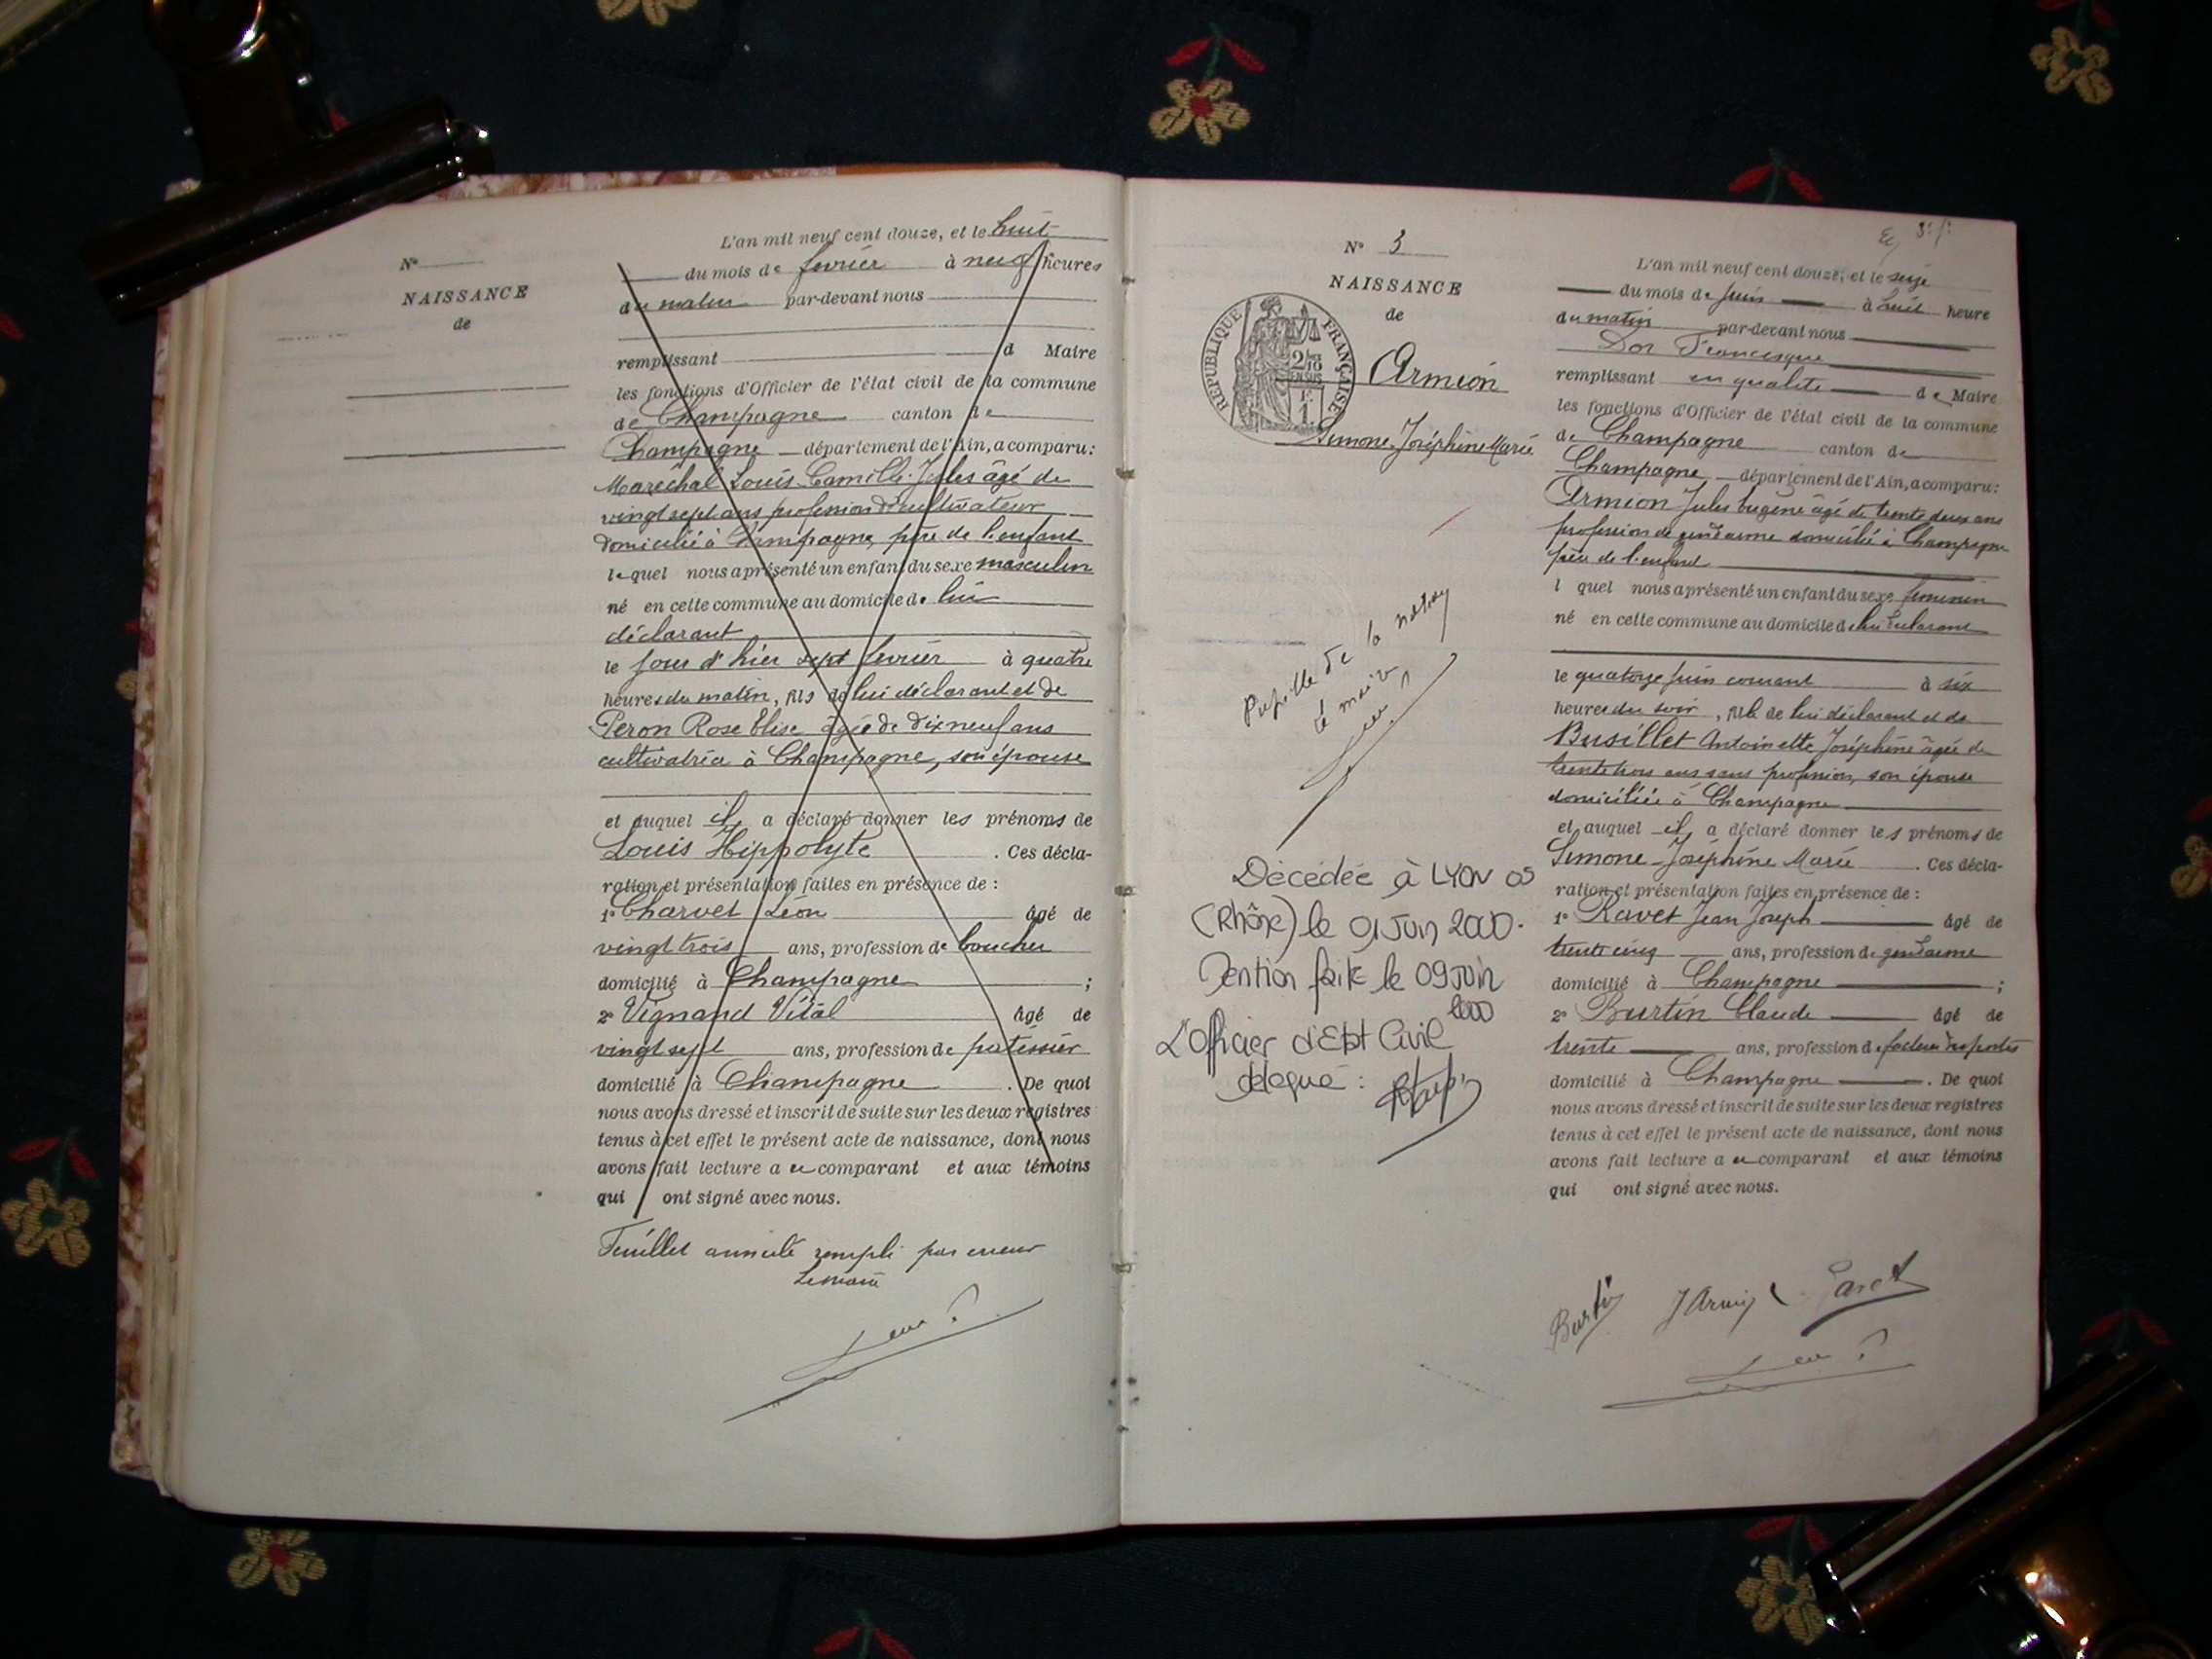 L'an mil neuf cent douze, et le huit
N°
du mois de février à neuf heures
NAISSANCE
de
du matin par-devant nous
remplissant d Maire
les fonctions d'Officier de l'état civil de la commune
de Champagne canton de
Champagne département de l'Ain, a comparu:
Maréchal Louis Camille Jules âgé de
vingt sept ans profession de cultivateur
domicilié à Champagne, père de l'enfant
lequel nous a présenté un enfant du sexe masculin
né en cette commune au domicile de lui
déclarant
le jour d'hier sept février à quatre
heures du matin, fils de lui déclarant et de
Peron Rose Elise âgée de dix neuf ans
cultivatrice à Champagne, son épouse
et auquel il a déclaré donner les prénoms de
Louis Hippolyte. Ces décla-
ration et présentation faites en présence de :
1° Charvet Léon âgé de
vingt trois ans, profession de boucher
domicilié à Champagne ;
2° Vignand Vital âgé de
vingt sept ans, profession de patissier
domicilié à Champagne. De quoi
nous avons dressé et inscrit de suite sur les deux registres
tenus à cet effet le présent acte de naissance, dont nous
avons fait lecture au comparant et aux témoins
qui ont signé avec nous.
Feuillet annulé rempli par erreur
Le maire
N° 3
NAISSANCE
de
RÉPUBLIQUE FRANÇAISE
2/10
EN SUS
1 F.
Armion
Simone Joséphine Marie
Pupille de la nation
Le maire
Décédée à LYON 03
(Rhône) le 01 Juin 2000.
Mention faite le 09 Juin
2000
L'Officier d'Etat Civil
délégué :
L'an mil neuf cent douze, et le seize
du mois de juin à huit heure
du matin par-devant nous
Dor Francisque
remplissant en qualité de Maire
les fonctions d'Officier de l'état civil de la commune
de Champagne canton de
Champagne département de l'Ain, a comparu:
Armion Jules Eugène âgé de trente deux ans
profession de gendarme domicilié à Champagne
père de l'enfant
l quel nous a présenté un enfant du sexe feminin
né en cette commune au domicile de lui déclarant
le quatorze juin courant à six
heures du soir, fille de lui déclarant et de
Busillet Antoinette Joséphine âgée de
trente trois ans sans profession, son épouse
domiciliée à Champagne
et auquel il a déclaré donner les prénoms de
Simone Joséphine Marie. Ces décla-
ration et présentation faites en présence de :
1° Ravet Jean Joseph âgé de
trente cinq ans, profession de gendarme
domicilié à Champagne ;
2° Burtin Claude âgé de
trente ans, profession de facteur des postes
domicilié à Champagne. De quoi
nous avons dressé et inscrit de suite sur les deux registres
tenus à cet effet le présent acte de naissance, dont nous
avons fait lecture au comparant et aux témoins
qui ont signé avec nous.
Burtin J Armion Ravet